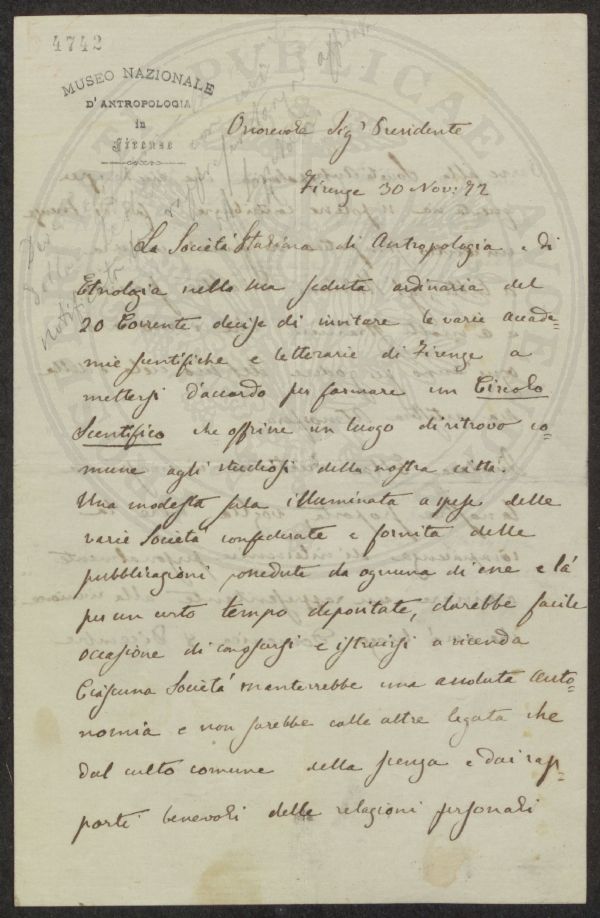 4742
MUSEO NAZIONALE
D'ANTROPOLOGIA
in
Firenze
Onorevole Sigr Presidente
Firenze 30 Nov: 72
La Società Italiana di Antropologia e di
Etnologia nella sua seduta ordinaria del
20 Corrente decise di invitare le varie Accade=
mie scentifiche e letterarie di Firenze a
mettersi d'accordo per formare un Circolo
Scentifico che offrisse un luogo di ritrovo co=
mune agli studiosi della nostra città.
Una modesta sala illuminata a spese delle
varie Società confederate e fornita delle
pubblicazioni possedute da ognuna di esse e là
per un certo tempo depositate, darebbe facile
occasione di conoscersi e istruirsi a vicenda
Ciascuna Società manterrebbe una assoluta auto=
nomia e non sarebbe colle altre legata che
dal culto comune della scenza e dai rap=
porti benevoli delle relazioni personali